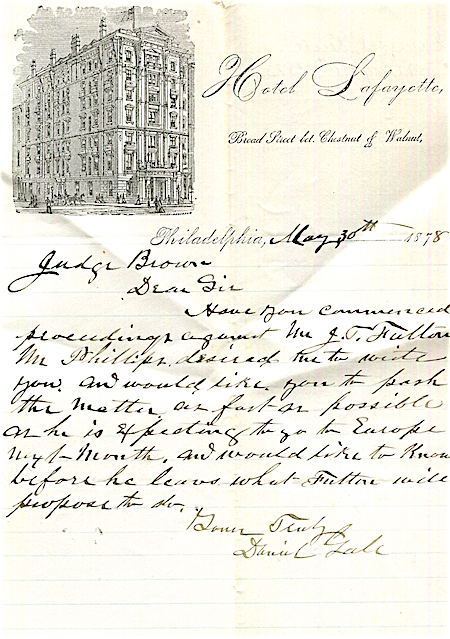 Hotel Lafayette,
Broad Street bet. Chestnut & Walnut,
Philadelphia, May 30th 1878
Judge Brown
Dear Sir
Have you commenced
proceedings against Mr J. T. Fulton
Mr Phillips desired me to write
you. and would like you to push
the matter as fast as possible
as he is Expecting to go to Europe
next Month, and would like to Know
before he leaves what Fulton will
propose to do.
Yours Truly
Daniel